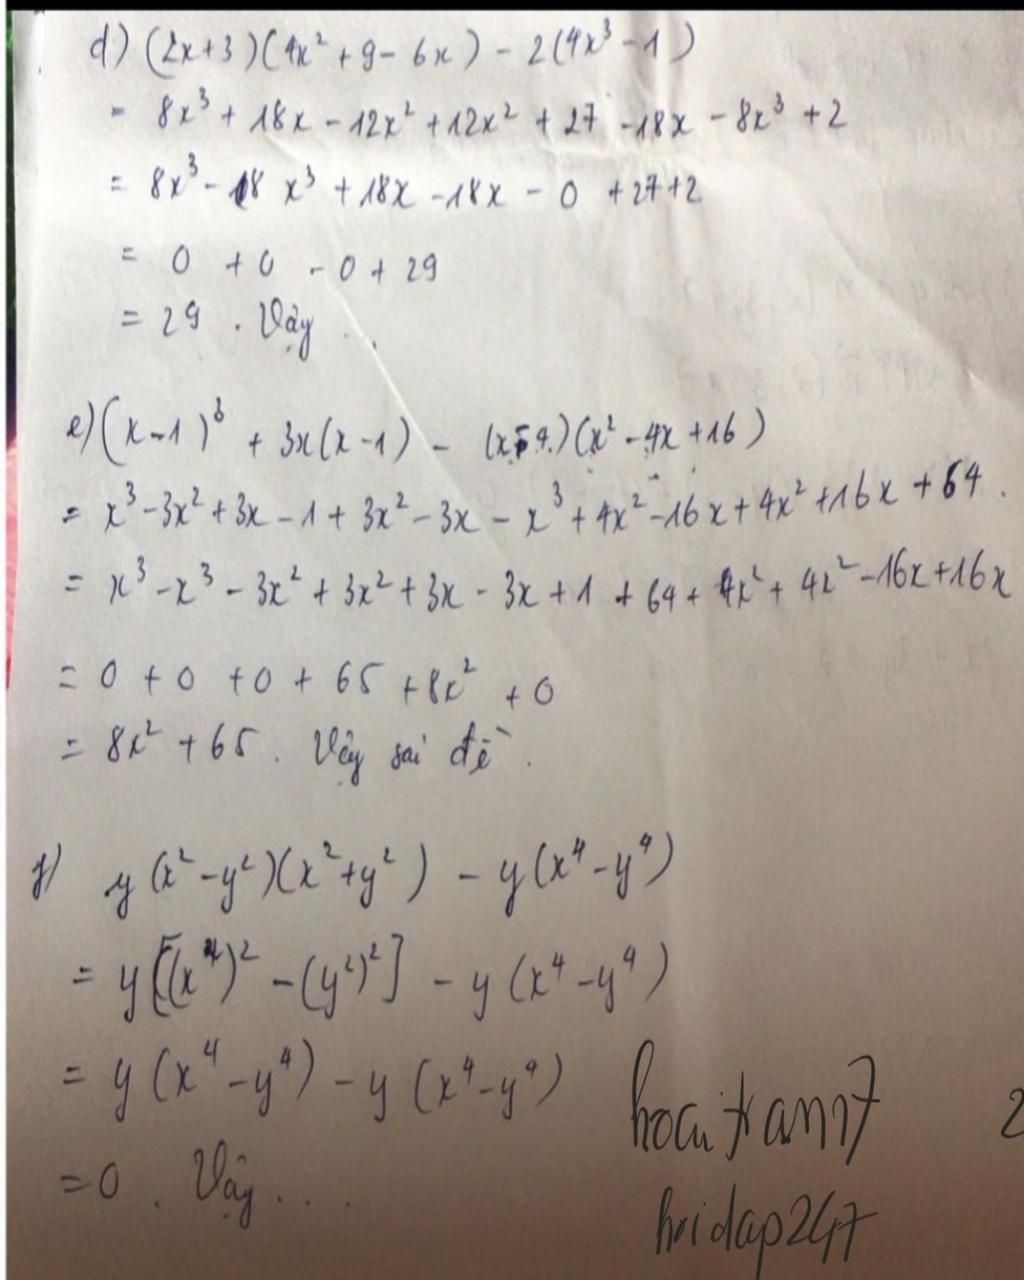 d) (2x+3)(4x² + 9 - 6x) - 2(4x³ - 1)
= 8x³ + 18x - 12x² + 12x² + 27 - 18x - 8x³ + 2
= 8x³ - 8x³ + 18x - 18x - 0 + 27 + 2
= 0 + 0 - 0 + 29
= 29 . Vậy ..
e) (x-1)³ + 3x(x-1) - (x 4)(x² - 4x + 16)
= x³ - 3x² + 3x - 1 + 3x² - 3x - x³ + 4x² - 16x + 4x² + 16x + 64 .
= x³ - x³ - 3x² + 3x² + 3x - 3x + 1 + 64 + 4x² + 4x² - 16x + 16x
= 0 + 0 + 0 + 65 + 8x² + 0
= 8x² + 65 . Vậy sai đề .
y (x² - y²)(x² + y²) - y(x⁴ - y⁴)
= y[(x)² - (y²)²] - y(x⁴ - y⁴)
= y(x⁴ - y⁴) - y(x⁴ - y⁴)
= 0 . Vậy ....
hoaitran17
2
hoidap247